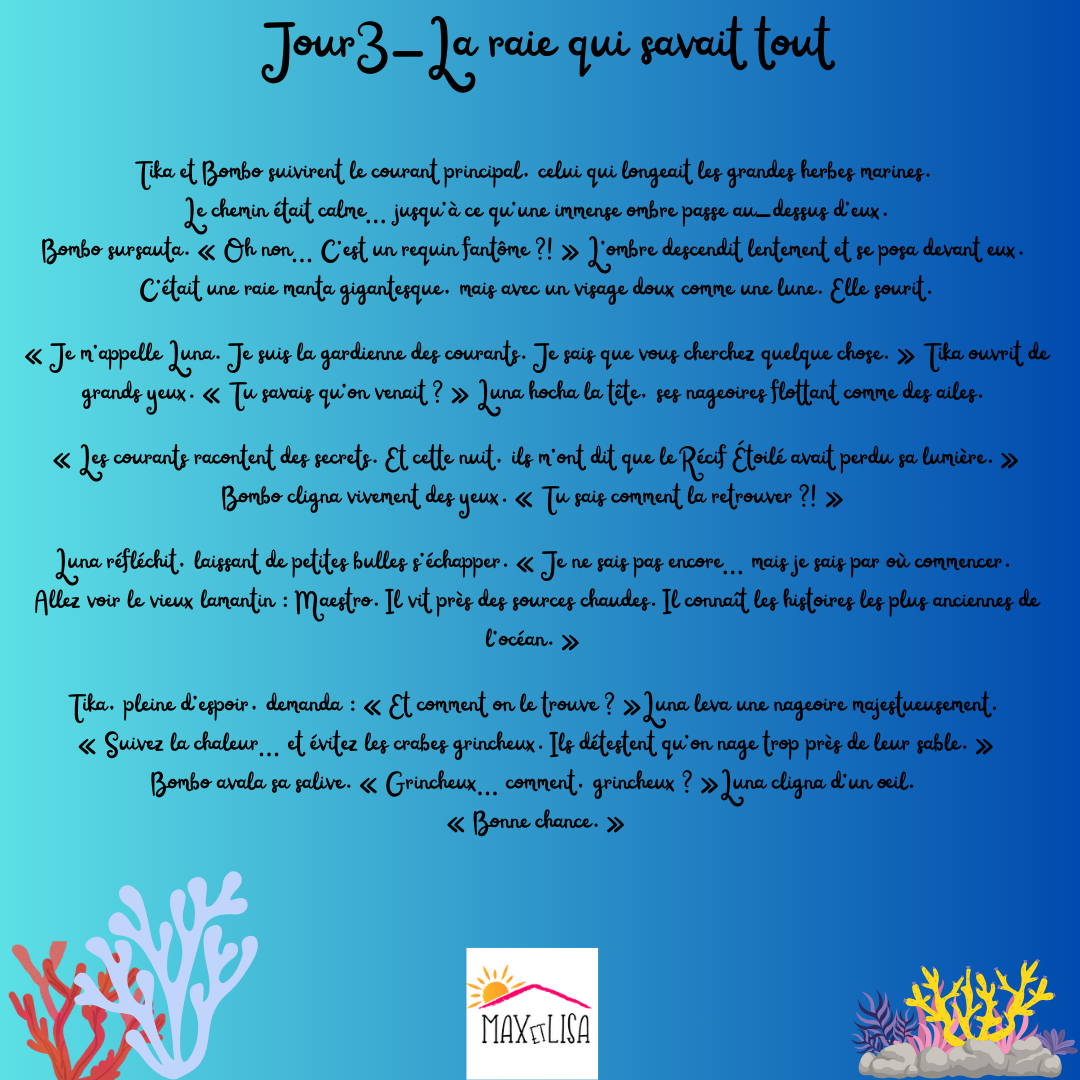 Jour3-La raie qui savait tout
Tika et Bombo suivirent le courant principal, celui qui longeait les grandes herbes marines.
Le chemin était calme... jusqu'à ce qu'une immense ombre passe au-dessus d'eux.
Bombo sursauta. « Oh non... C'est un requin fantôme ?! » L'ombre descendit lentement et se posa devant eux.
C'était une raie manta gigantesque, mais avec un visage doux comme une lune. Elle sourit.
« Je m'appelle Luna. Je suis la gardienne des courants. Je sais que vous cherchez quelque chose. » Tika ouvrit de
grands yeux. « Tu savais qu'on venait ? » Luna hocha la tête, ses nageoires flottant comme des ailes.
« Les courants racontent des secrets. Et cette nuit, ils m'ont dit que le Récif Étoilé avait perdu sa lumière. »
Bombo cligna vivement des yeux. « Tu sais comment la retrouver ?! »
Luna réfléchit, laissant de petites bulles s'échapper. « Je ne sais pas encore... mais je sais par où commencer.
Allez voir le vieux lamantin : Maestro. Il vit près des sources chaudes. Il connaît les histoires les plus anciennes de
l'océan. »
Tika, pleine d'espoir, demanda : « Et comment on le trouve ? »Luna leva une nageoire majestueusement.
« Suivez la chaleur... et évitez les crabes grincheux. Ils détestent qu'on nage trop près de leur sable. »
Bombo avala sa salive. « Grincheux... comment, grincheux ? »Luna cligna d'un œil.
« Bonne chance. »
MAX ET LISA